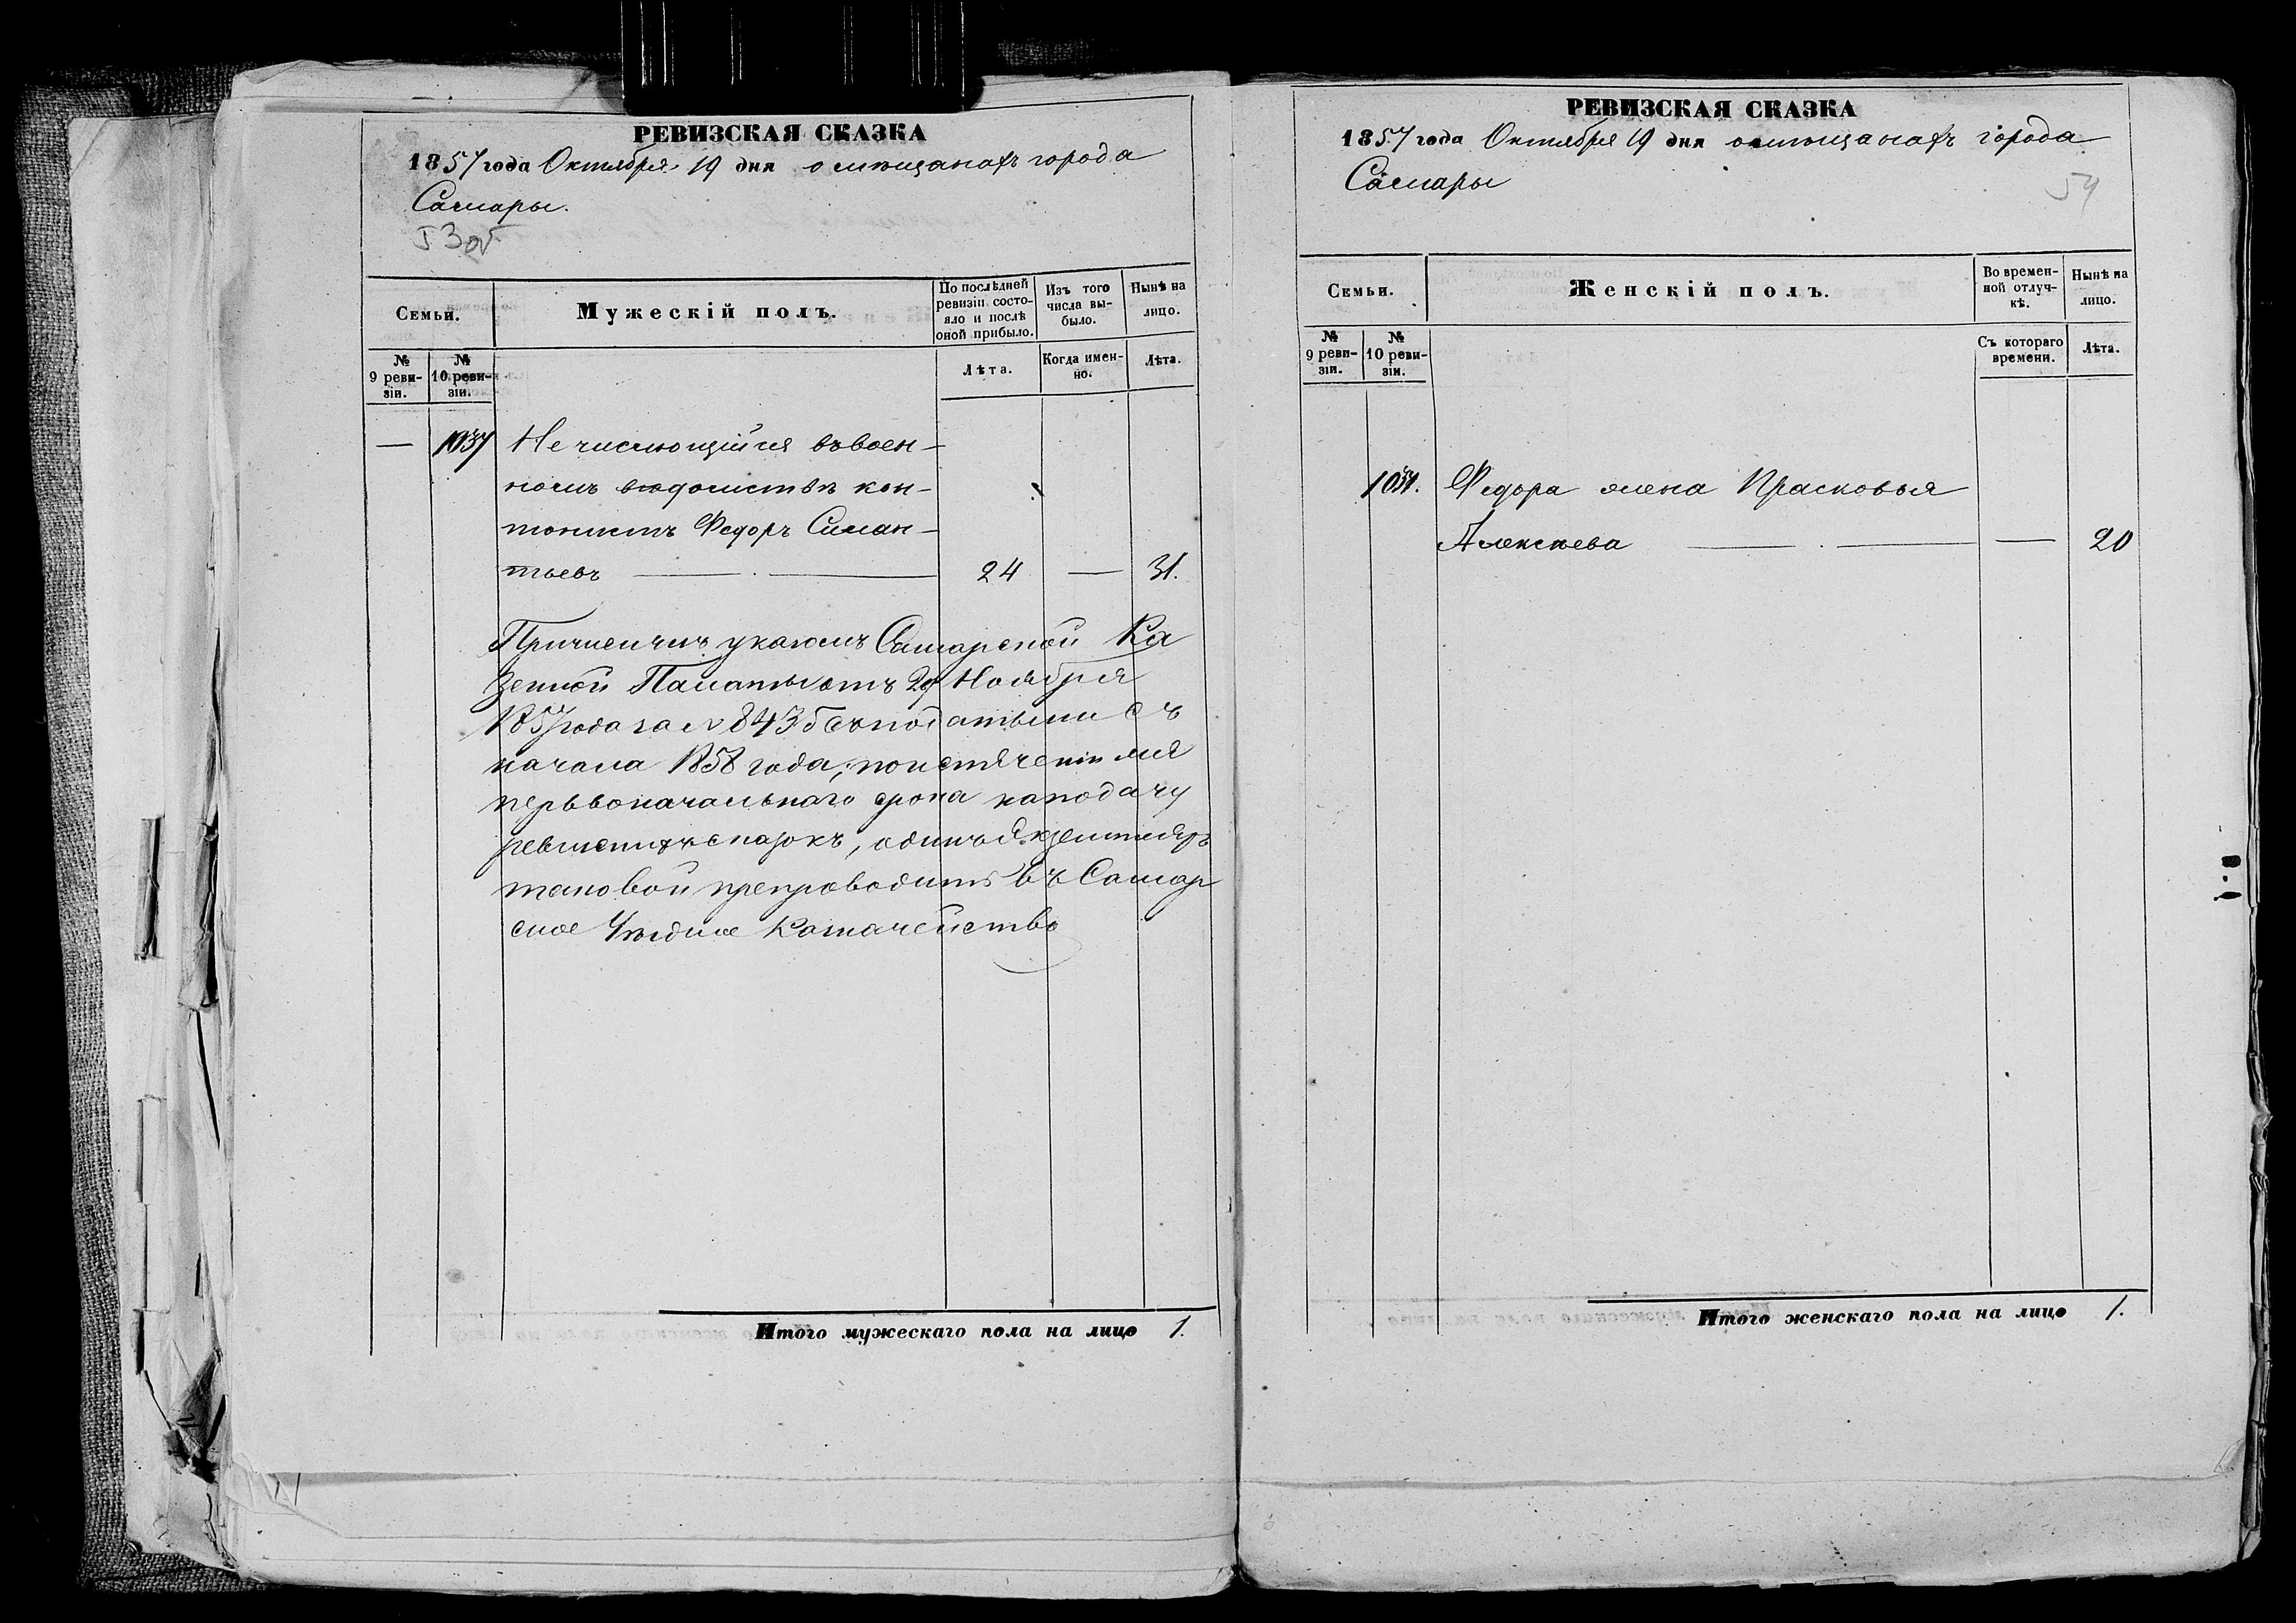 РЕВИЗСКАЯ СКАЗКА
1857 года Октября 19 дня о мѣщанахъ города
Самары.
53об
Семьи.
Мужескій полъ.
По послѣдней ревизіи состояло и послѣ оной прибыло.
Изъ того числа выбыло.
Нынѣ на лицо.
№ 9 ревизіи.
№ 10 ревизіи.
Лѣта.
Когда именно.
Лѣта.
— 1037 Не числющійся въ воен-
номъ вѣдомствѣ кан-
тонистъ Федоръ Силан-
тьевъ 24 — 31.
Причисленъ указомъ Самарской Ка
зенной Палаты отъ 29 Ноября
1857 года за № 843 съ податьми съ
начала 1858 года, по истеченіи
первоначальнаго срока на подачу
ревизскихъ сказокъ, одинъ Экземпляръ
таковой препроводить въ Самар
ское Уѣздное Казначейство
Итого мужескаго пола на лицо 1.
РЕВИЗСКАЯ СКАЗКА
1857 года Октября 19 дня о мѣщанахъ города
Самары
54
Семьи.
Женскій полъ.
Во временной отлучкѣ.
Нынѣ на лицо.
№ 9 ревизіи.
№ 10 ревизіи.
Съ котораго времени.
Лѣта.
1037. Федора жена Прасковья
Алексѣева — 20
Итого женскаго пола на лицо 1.